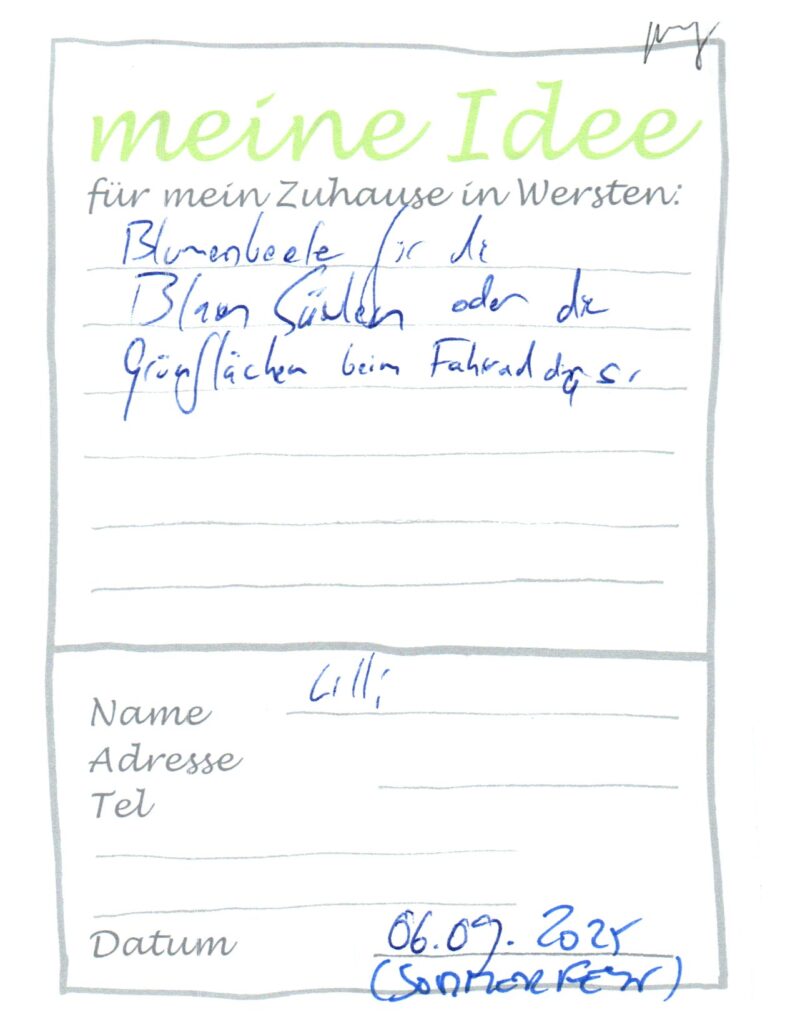 meine Idee
für mein Zuhause in Wersten:
Blumenbeete für die
Blauen Säulen oder die
Grünflächen beim Fahrrad
Name Lilli
Adresse
Tel
Datum 06.09.2025
(SOMMERFEST)